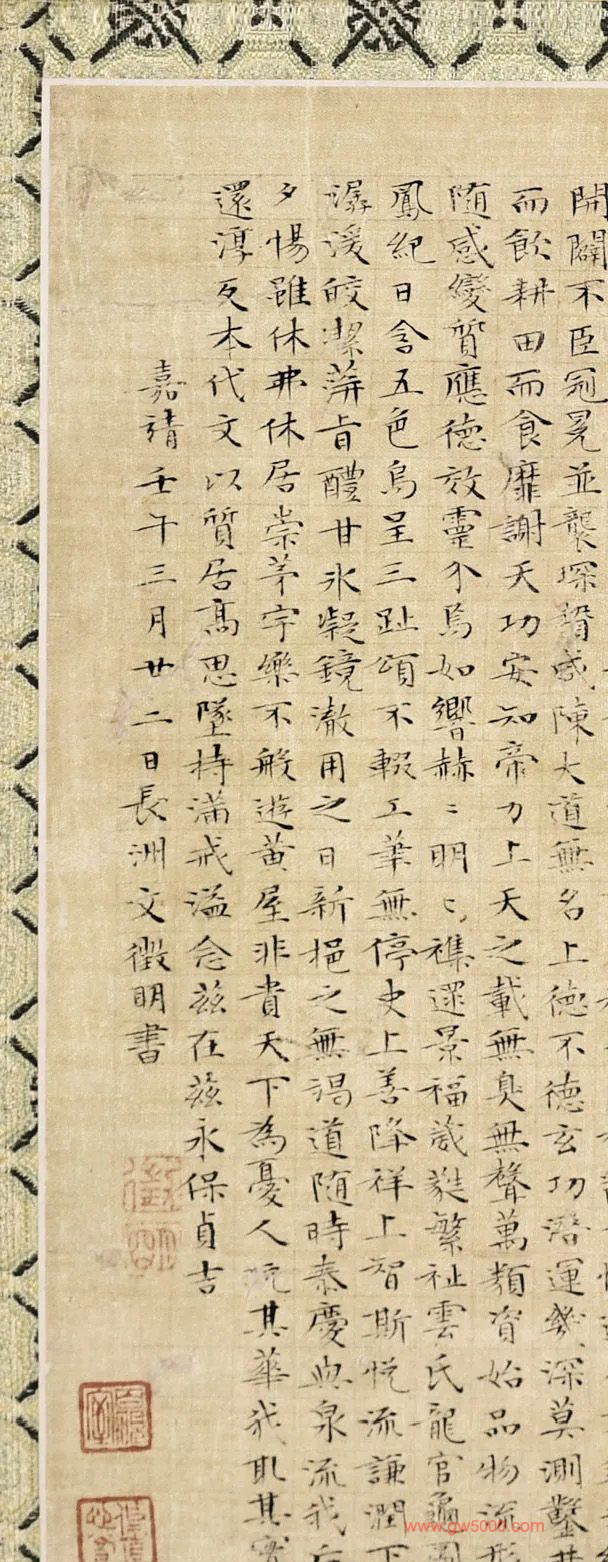 開闢不臣冠冕並襲琛贄咸陳大道無名上德不德玄功潛運幾深莫測鑿井
而飲耕田而食靡謝天功安知帝力上天之載無臭無聲萬類資始品物流形
随感變質應德效靈介焉如響赫〻明〻雜遝景福葳蕤繁祉雲氏龍官龜圖
鳳紀日含五色烏呈三趾頌不輟工筆無停史上善降祥上智斯悅流謙潤下
潺湲皎潔蓱旨醴甘氷凝鏡澈用之日新挹之無渴道随時泰慶與泉流我后
夕惕雖休弗休居崇茅宇樂不般遊黃屋非貴天下為憂人玩其華我取其實
還淳反本代文以質居髙思墜持滿戒溢念茲在茲永保貞吉
嘉靖壬午三月廿二日長洲文徵明書
www.gw5000.com